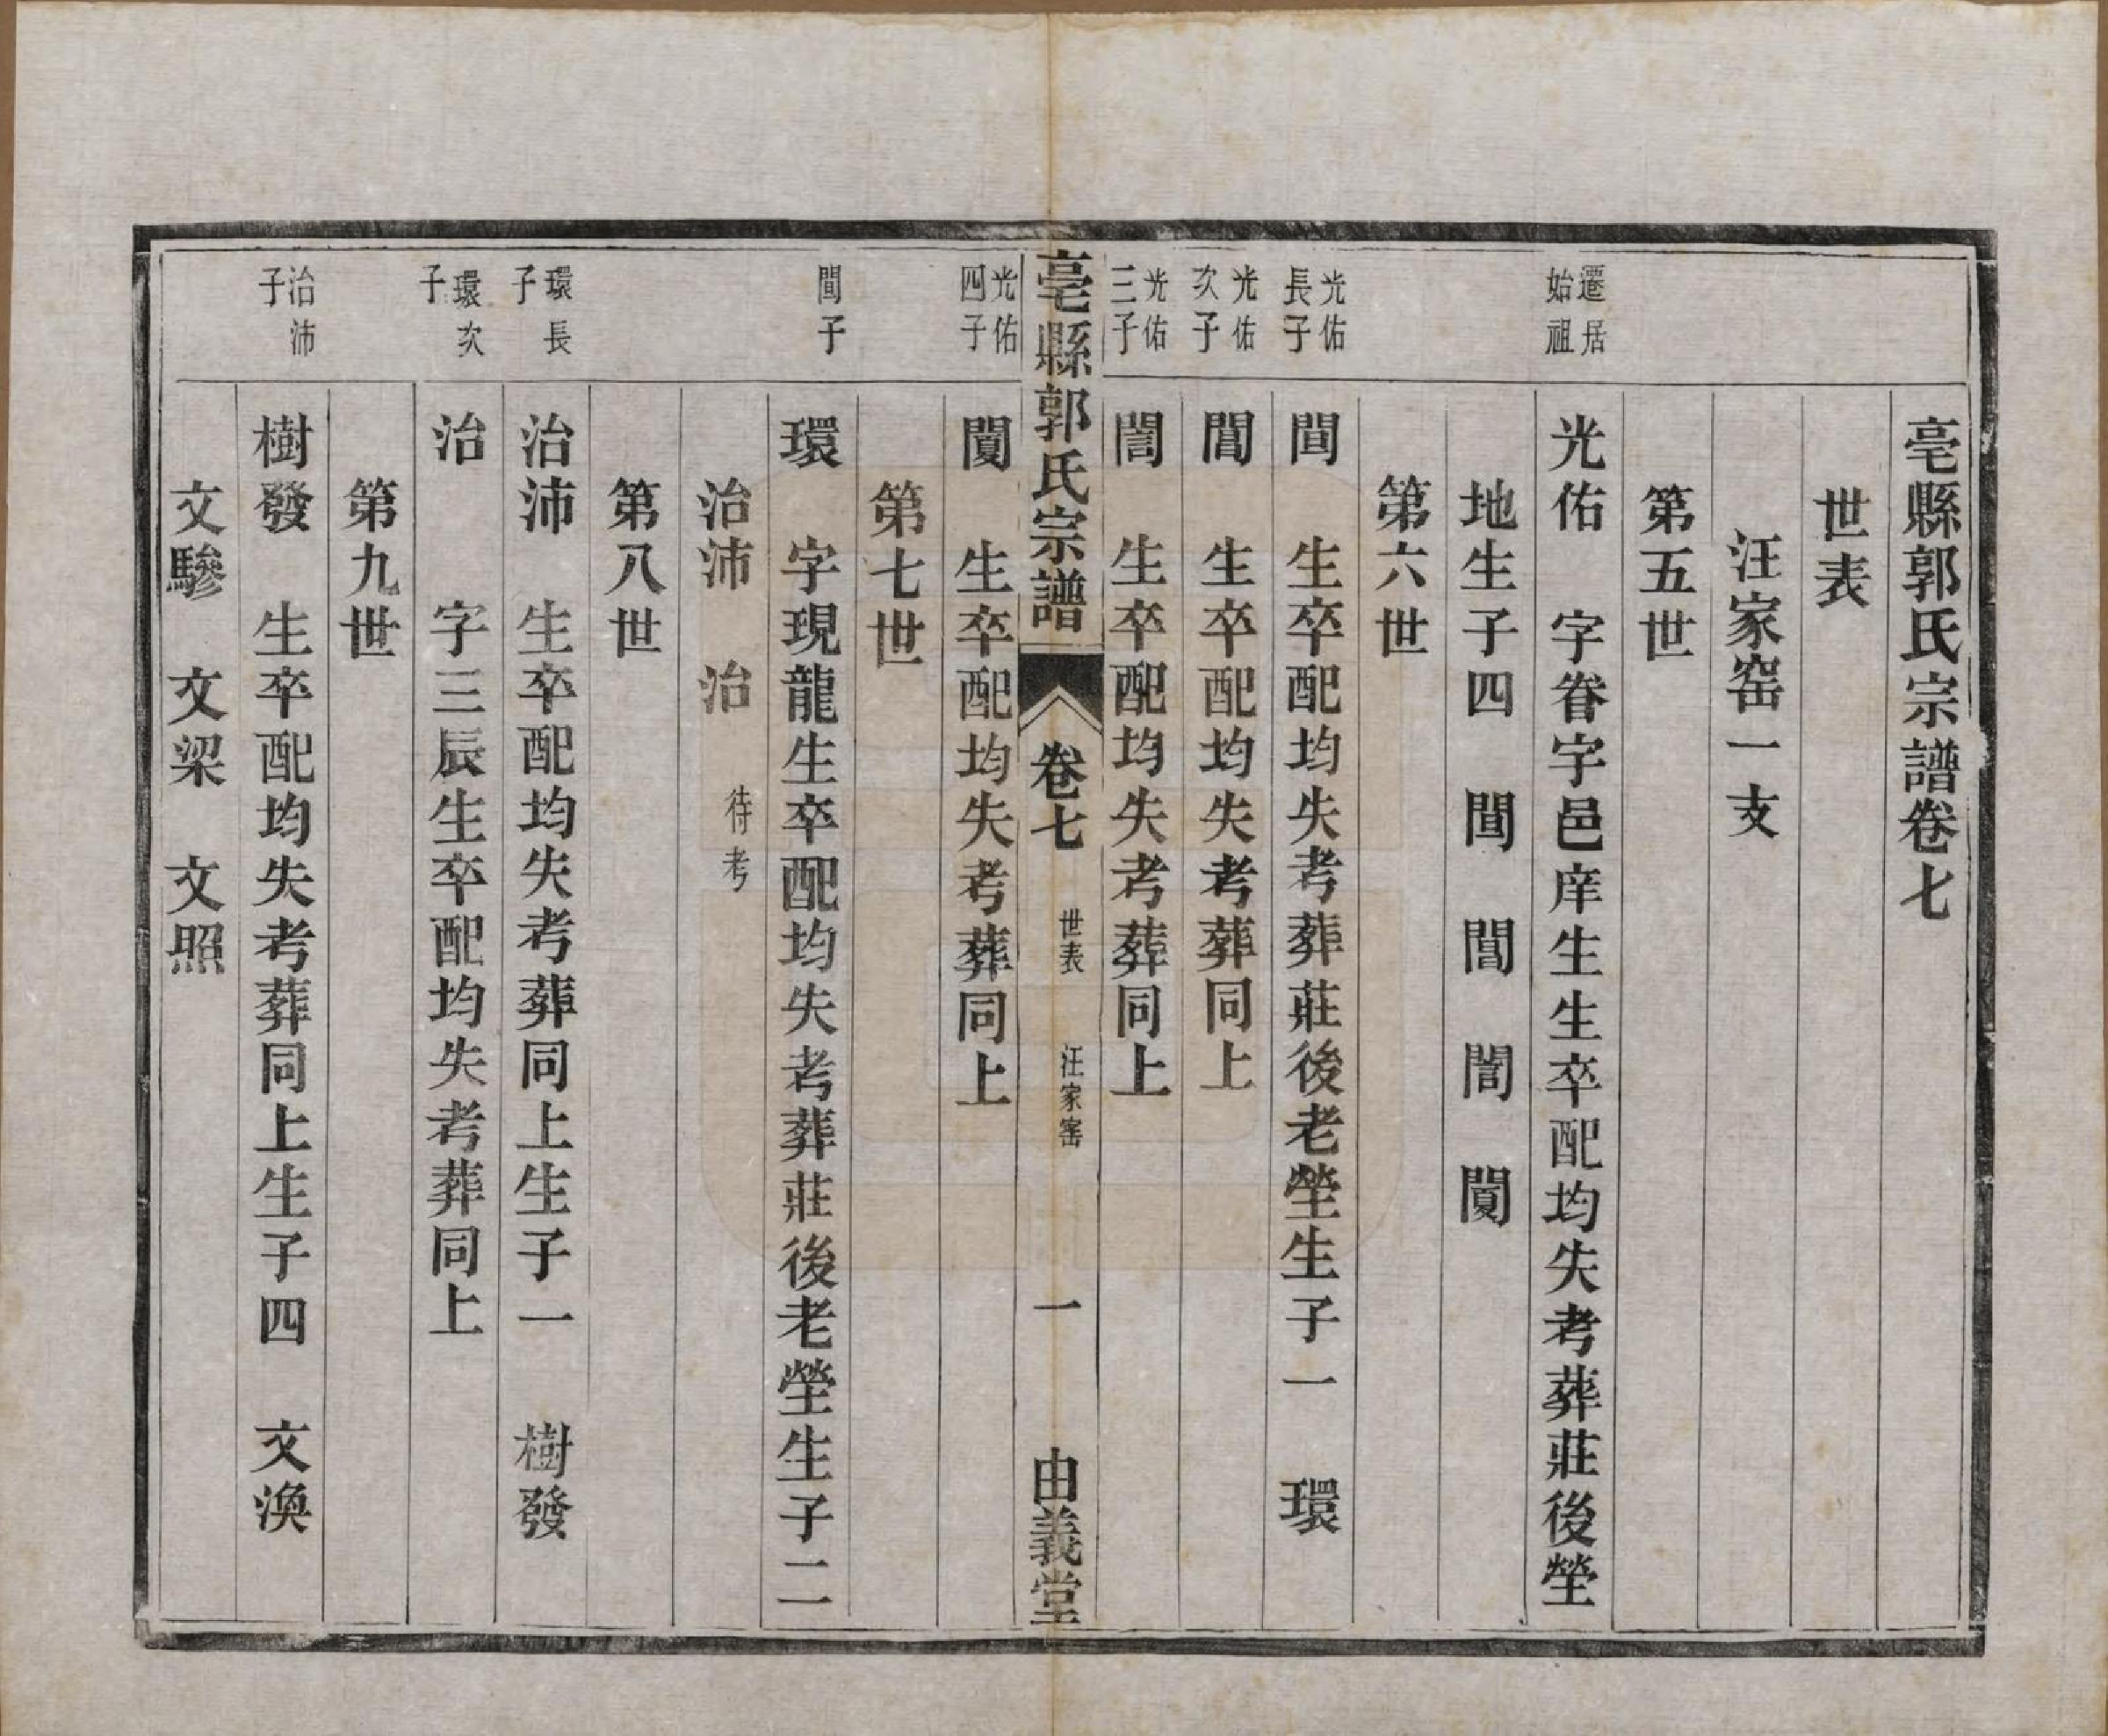 亳縣郭氏宗譜卷七
世表
汪家窑一支
第五世
遷居始祖
光佑　字眷宇邑庠生生卒配均失考葬莊後塋
地生子四　間　閭　誾
第六世
光佑長子
間　生卒配均失考葬莊後老塋生子一　環
光佑次子
閭　生卒配均失考葬同上
光佑三子
誾　生卒配均失考葬同上
亳縣郭氏宗譜　卷七　世表　汪家窑　一　由義堂
光佑四子
生卒配均失考葬同上
第七世
間子
環　字現龍生卒配均失考葬莊後老塋生子二
治沛　治　待考
第八世
環長子
治沛　生卒配均失考葬同上生子一　樹發
環次子
治　字三辰生卒配均失考葬同上
第九世
治沛子
樹發　生卒配均失考葬同上生子四　文渙
文驂　文梁　文照